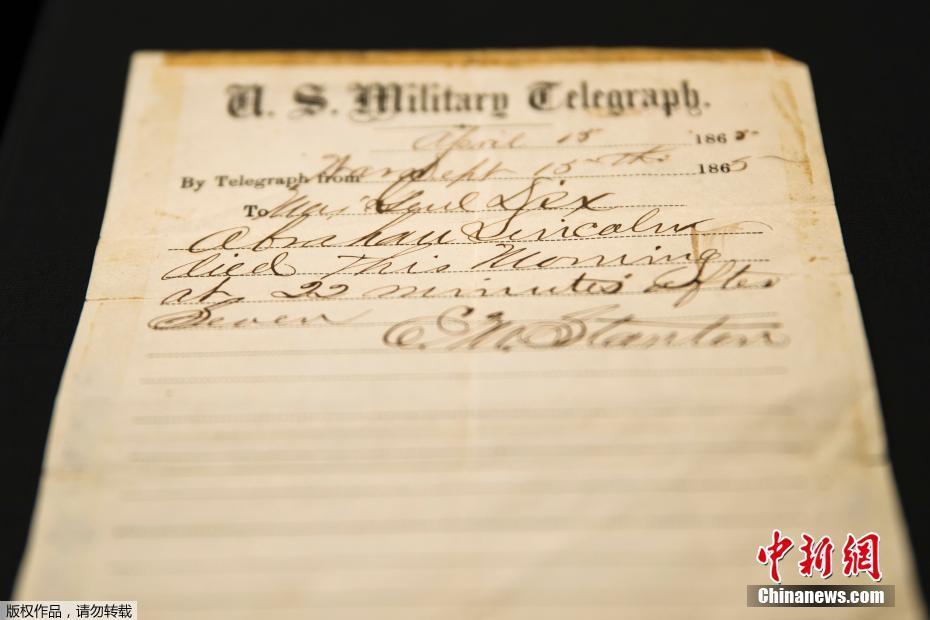 U. S. Military Telegraph.
April 15 1865
By Telegraph from War Dept 15th 1865
To Maj Genl Dix
Abraham Lincoln
died This Morning
at 22 minutes after
Seven E. M. Stanton
中新网
Chinanews.com
版权作品，请勿转载